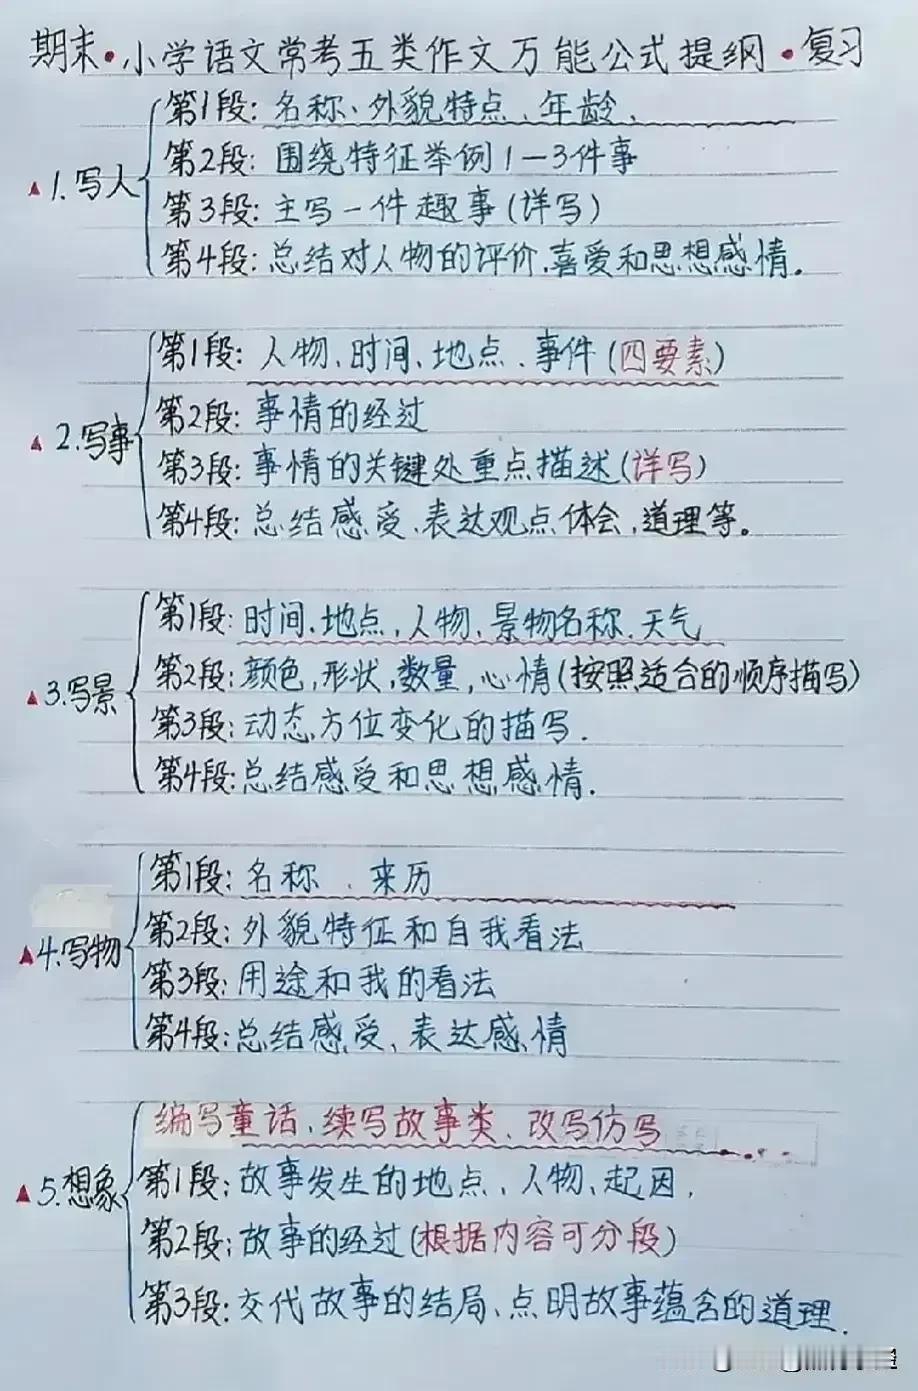 期末·小学语文常考五类作文万能公式提纲·复习
第1段:名称、外貌特点、年龄、
第2段:围绕特征举例1—3件事
▲1.写人
第3段:主写一件趣事(详写)
第4段:总结对人物的评价、喜爱和思想感情。
第1段:人物、时间、地点、事件(四要素)
第2段:事情的经过
▲2.写事
第3段:事情的关键处重点描述(详写)
第4段:总结感受、表达观点体会,道理等。
第1段:时间、地点,人物、景物名称、天气
第2段:颜色,形状,数量,心情(按照适合的顺序描写)
▲3.写景
第3段:动态、方位变化的描写.
第4段:总结感受和思想感情.
第1段:名称、来历
第2段:外貌特征和自我看法
▲4.写物
第3段:用途和我的看法
第4段:总结感受、表达感情
编写童话、续写故事类、改写仿写
第1段:故事发生的地点、人物、起因,
▲5.想象
第2段:故事的经过(根据内容可分段)
第3段:交代故事的结局、点明故事蕴含的道理.